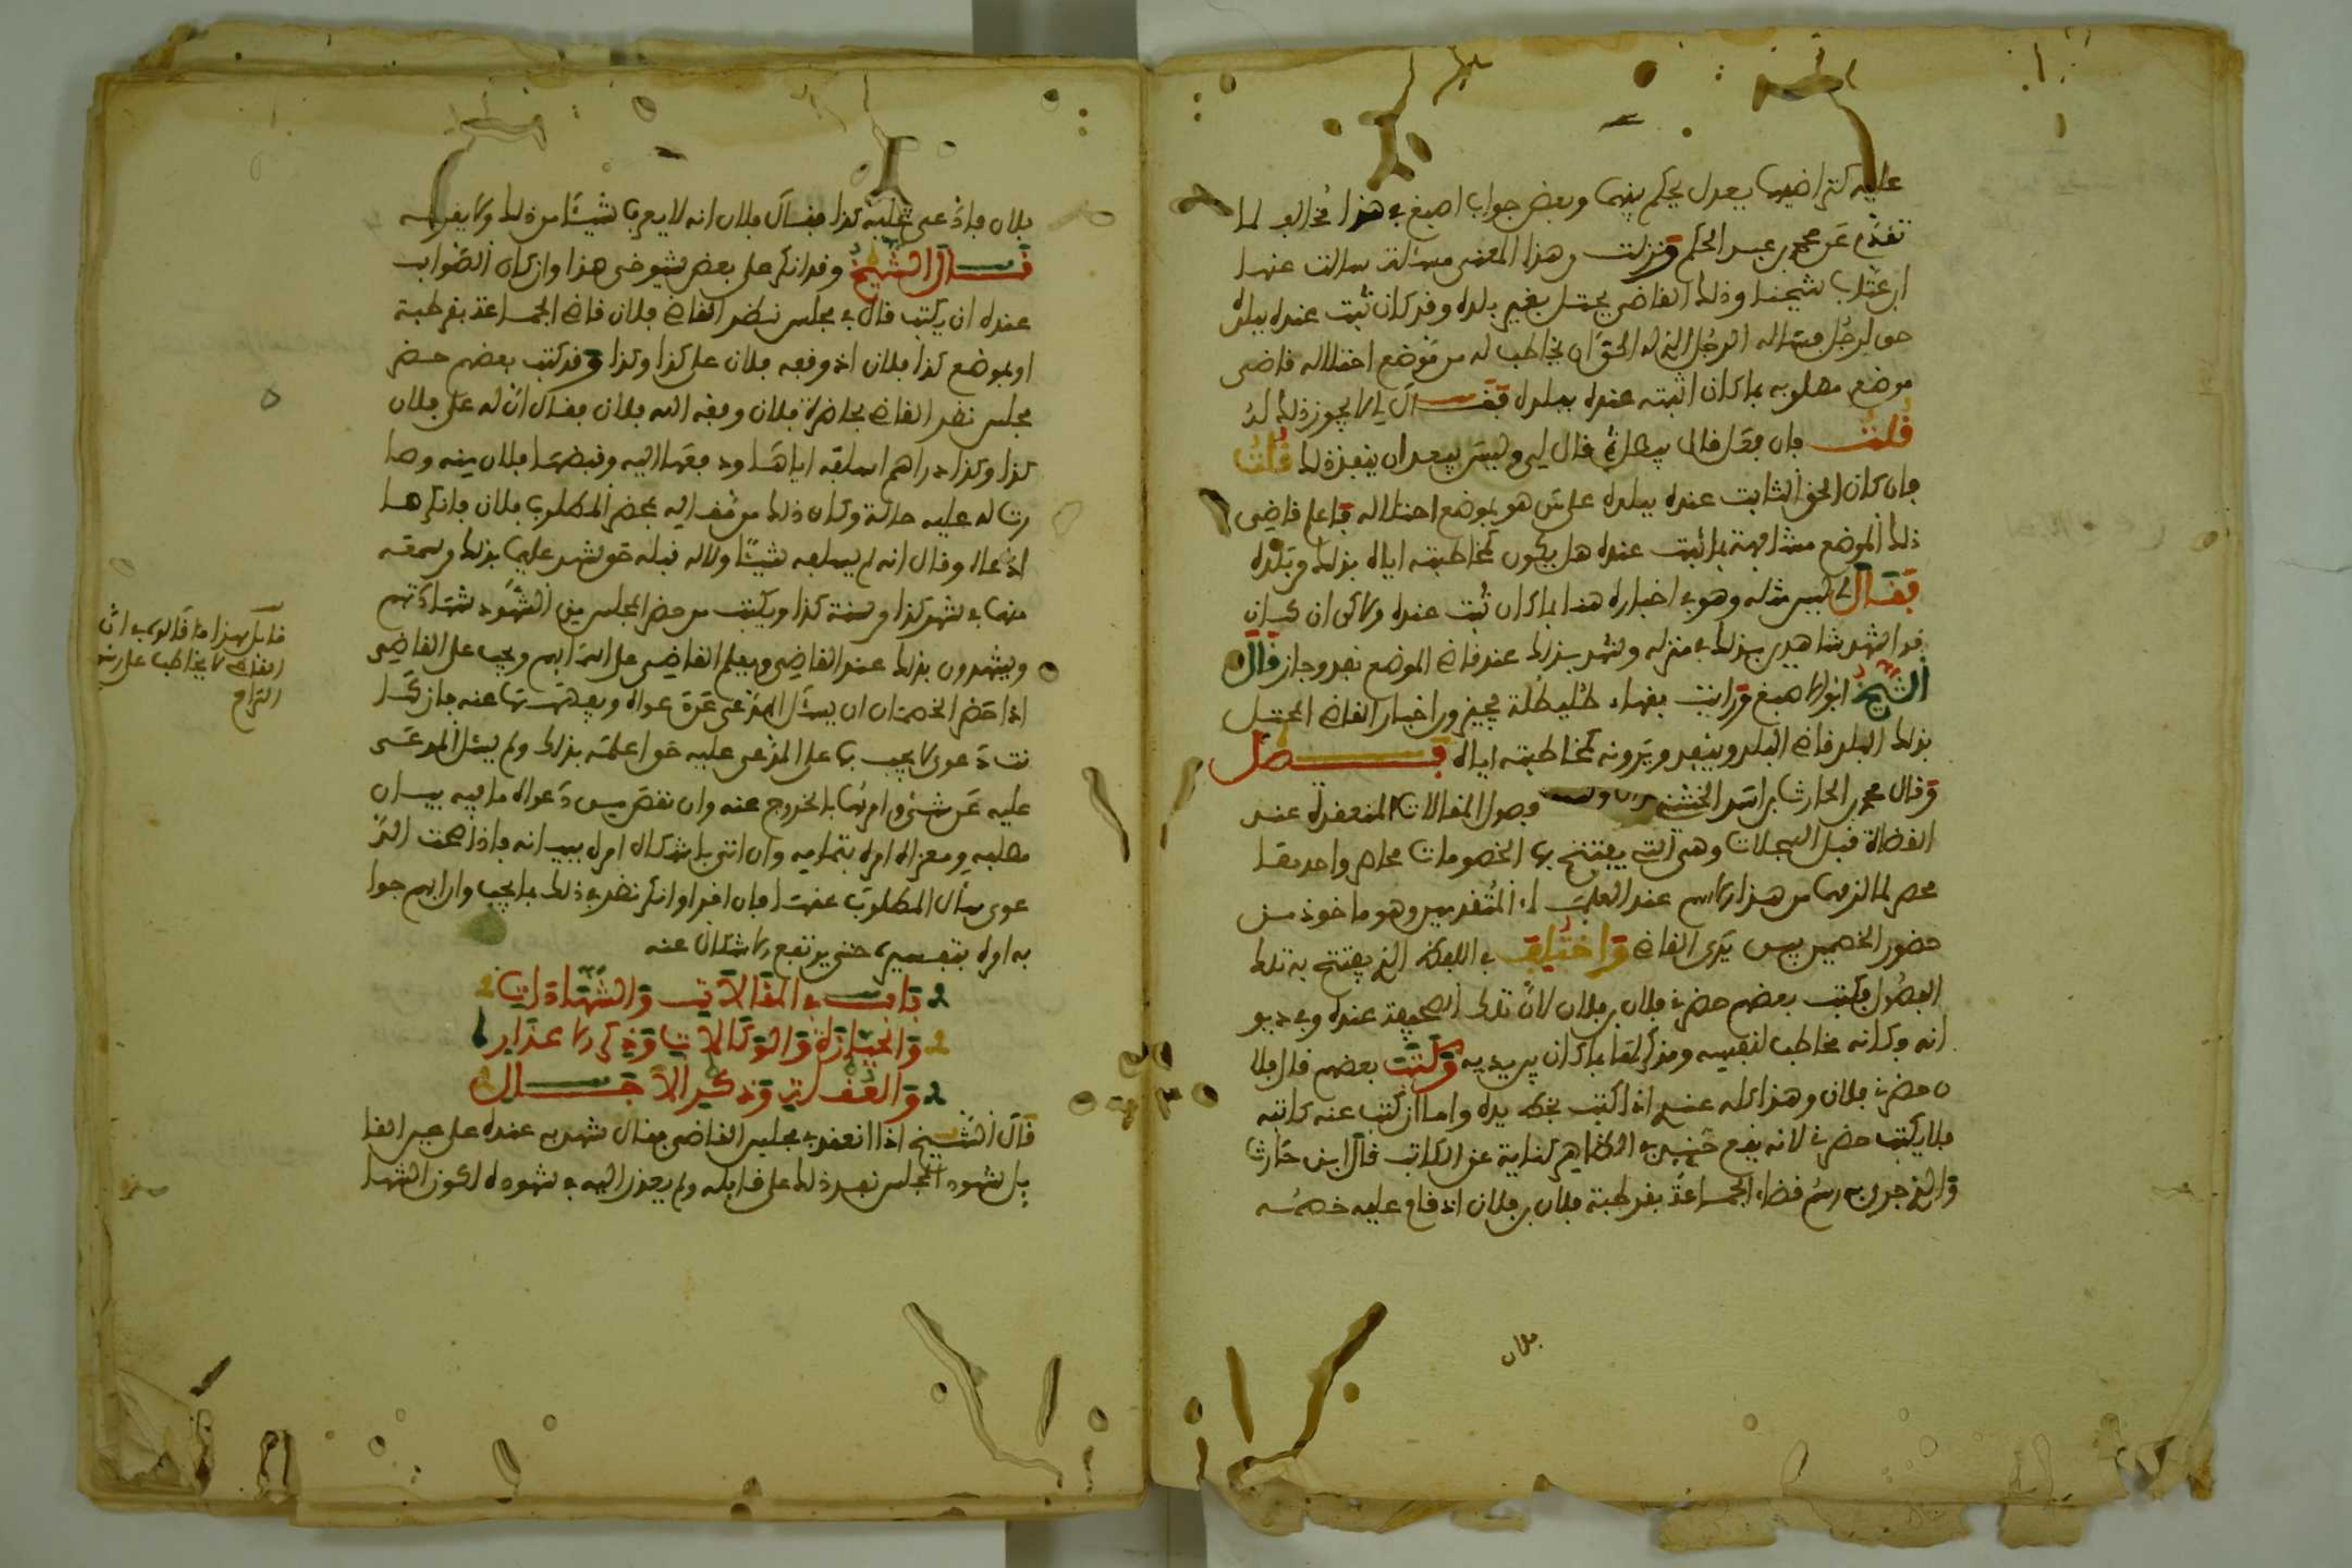 عليه كتراضيهما بعدل يحكم بينهما وبعض جواب اصبغ في هذا مخالف لما
تقدم عن محمد بن عبد الحكم ونزلت وهذا المعنى مسئلة سالت عنها
ابن عتاب شيخنا وذلك القاضي يحتل بغير بلده وقد كان ثبت عنده ببلده
حق لرجل فساله الرجل الذي له الحق ان يخاطب له من موضع احتلاله قاضي
موضع مطلوبه بما كان اثبته عنده ببلده فقال لي لا يجوز ذلك له
قلت فان فعل قال يبطل قال لي وليس يبعد ان ينفذ ذلك قلت
فان كان الحق الثابت عنده ببلده على من هو بموضع احتلاله فاعلم قاضي
ذلك الموضع مشافهة بما ثبت عنده هل يكون كمخاطبته اياه بذلك من بلده
فقال لي ليس مثله وهو في اخباره هذا بما كان ثبت عنده ولاكن ان كان
قد اشهد شاهدين بذلك في منزله وشهد بذلك عند قاضي الموضع نفذ وجاز قال
الشيخ ابو الاصبغ ورايت فقهاء طليطلة يجيزون اخبار القاضي المحتل
بذلك البلد قاضي البلد وينفذ ويرونه كمخاطبته اياه فصل
وقال محمد بن الحارث بن اسد الخشني فصول المقالات المنعقدة عند
القضاة قبل السجلات وهي التي يفتتح بها الخصومات محاضر واحدها
محضر لما لزمها من هذا الاسم عند العلماء المتقدمين وهو ماخوذ من
حضور الخصمين بين يدي القاضي واختلف في اللفظ الذي يفتتح به تلك
الفصول فكتب بعضهم حضرني فلان بن فلان لان تلك الصحيفة عنده وفي ديو
انه وكانه مخاطب لنفسه ومذكر لها بما كان بين يديه وكتب بعضهم قال فلا
ن حضرني فلان وهذا كله عندي اذا كتب بخط يده واما ان كتب عنه كاتبه
فلا يكتب حضرني لانه يقع حينئذ في الظاهر كناية عن الكاتب قال ابن حارث
والذي جرى به رسم قضاء الجماعة بقرطبة فلان بن فلان اذ قام عليه خصمه
فلان
فلان فادعى عليه كذا فقال فلان انه لا يعرف شيئا من ذلك ولا يقر به
قال الشيخ وقد انكر على بعض شيوخي هذا وان كان الصواب
عنده ان يكتب قال في مجلس نظر القاضي فلان قاضي الجماعة بقرطبة
او بموضع كذا فلان اذ وقفه فلان على كذا وكذا وقد كتب بعضهم حضر
مجلس نظر القاضي بحاضرة فلان وفيه اليه فلان فقال ان له على فلان
كذا وكذا دراهم اسلفه اياها ودفعها اليه وقبضها فلان منه وصا
رت له عليه حالة وكان ذلك من فيه اليه بمحضر المطلوب فلان فانكر ما
ادعاه وقال انه لم يسلفه شيئا ولا له قبله حق شهد عليهما بذلك وسمعه
منهما في شهر كذا من سنة كذا ويكتب من حضر المجلس من الشهود شهادتهم
ويشهدون بذلك عند القاضي ويعلم القاضي على اسمائهم ويجب على القاضي
اذا حضر الخصمان ان يسئل المدعي عن دعواه ويفهمها عنه فان كا
نت دعوى لا يجب بها على المدعى عليه حق اعلمه بذلك ولم يسئل المدعى
عليه عن شيء وامرهما بالخروج عنه وان نقص من دعواه ما فيه بيان
مطلبه ومعزاه امره بتمامه وان اتى باشكال امره ببيانه فاذا صحت الد
عوى سال المطلوب عنها فان اقر او انكر نظر في ذلك بما يجب وان ابهم جوا
به امره بتفسيره حتى يرتفع الاشكال عنه
باب في المقالات والشهادات
والحيازة والوكالات وذكر الاعذار
والعقلة وذكر الآجال
قال الشيخ اذا انعقد في مجلس القاضي مقال شهد به عنده على عين القا
يل شهود المجلس نفذ ذلك على قايله ولم يعذر اليه في شهوده لكون الشها
قابل هذا ما قالوه في ان
القاضي لا يخاطب على رسم